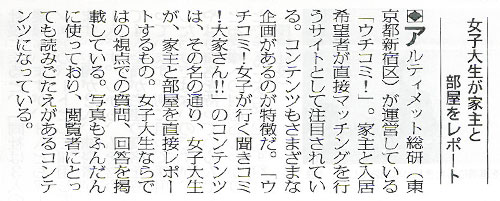 女子大生が家主と
部屋をレポート
◆アルティメット総研（東
京都新宿区）が運営している
「ウチコミ！」。家主と入居
希望者が直接マッチングを行
うサイトとして注目されてい
る。コンテンツもさまざまな
企画があるのが特徴だ。「ウ
チコミ！女子が行く聞きコミ
！大家さん!!」のコンテンツ
は、その名の通り、女子大生
が、家主と部屋を直接レポー
トするもの。女子大生ならで
はの視点での質問、回答を掲
載している。写真もふんだん
に使っており、閲覧者にとっ
ても読みごたえがあるコンテ
ンツになっている。